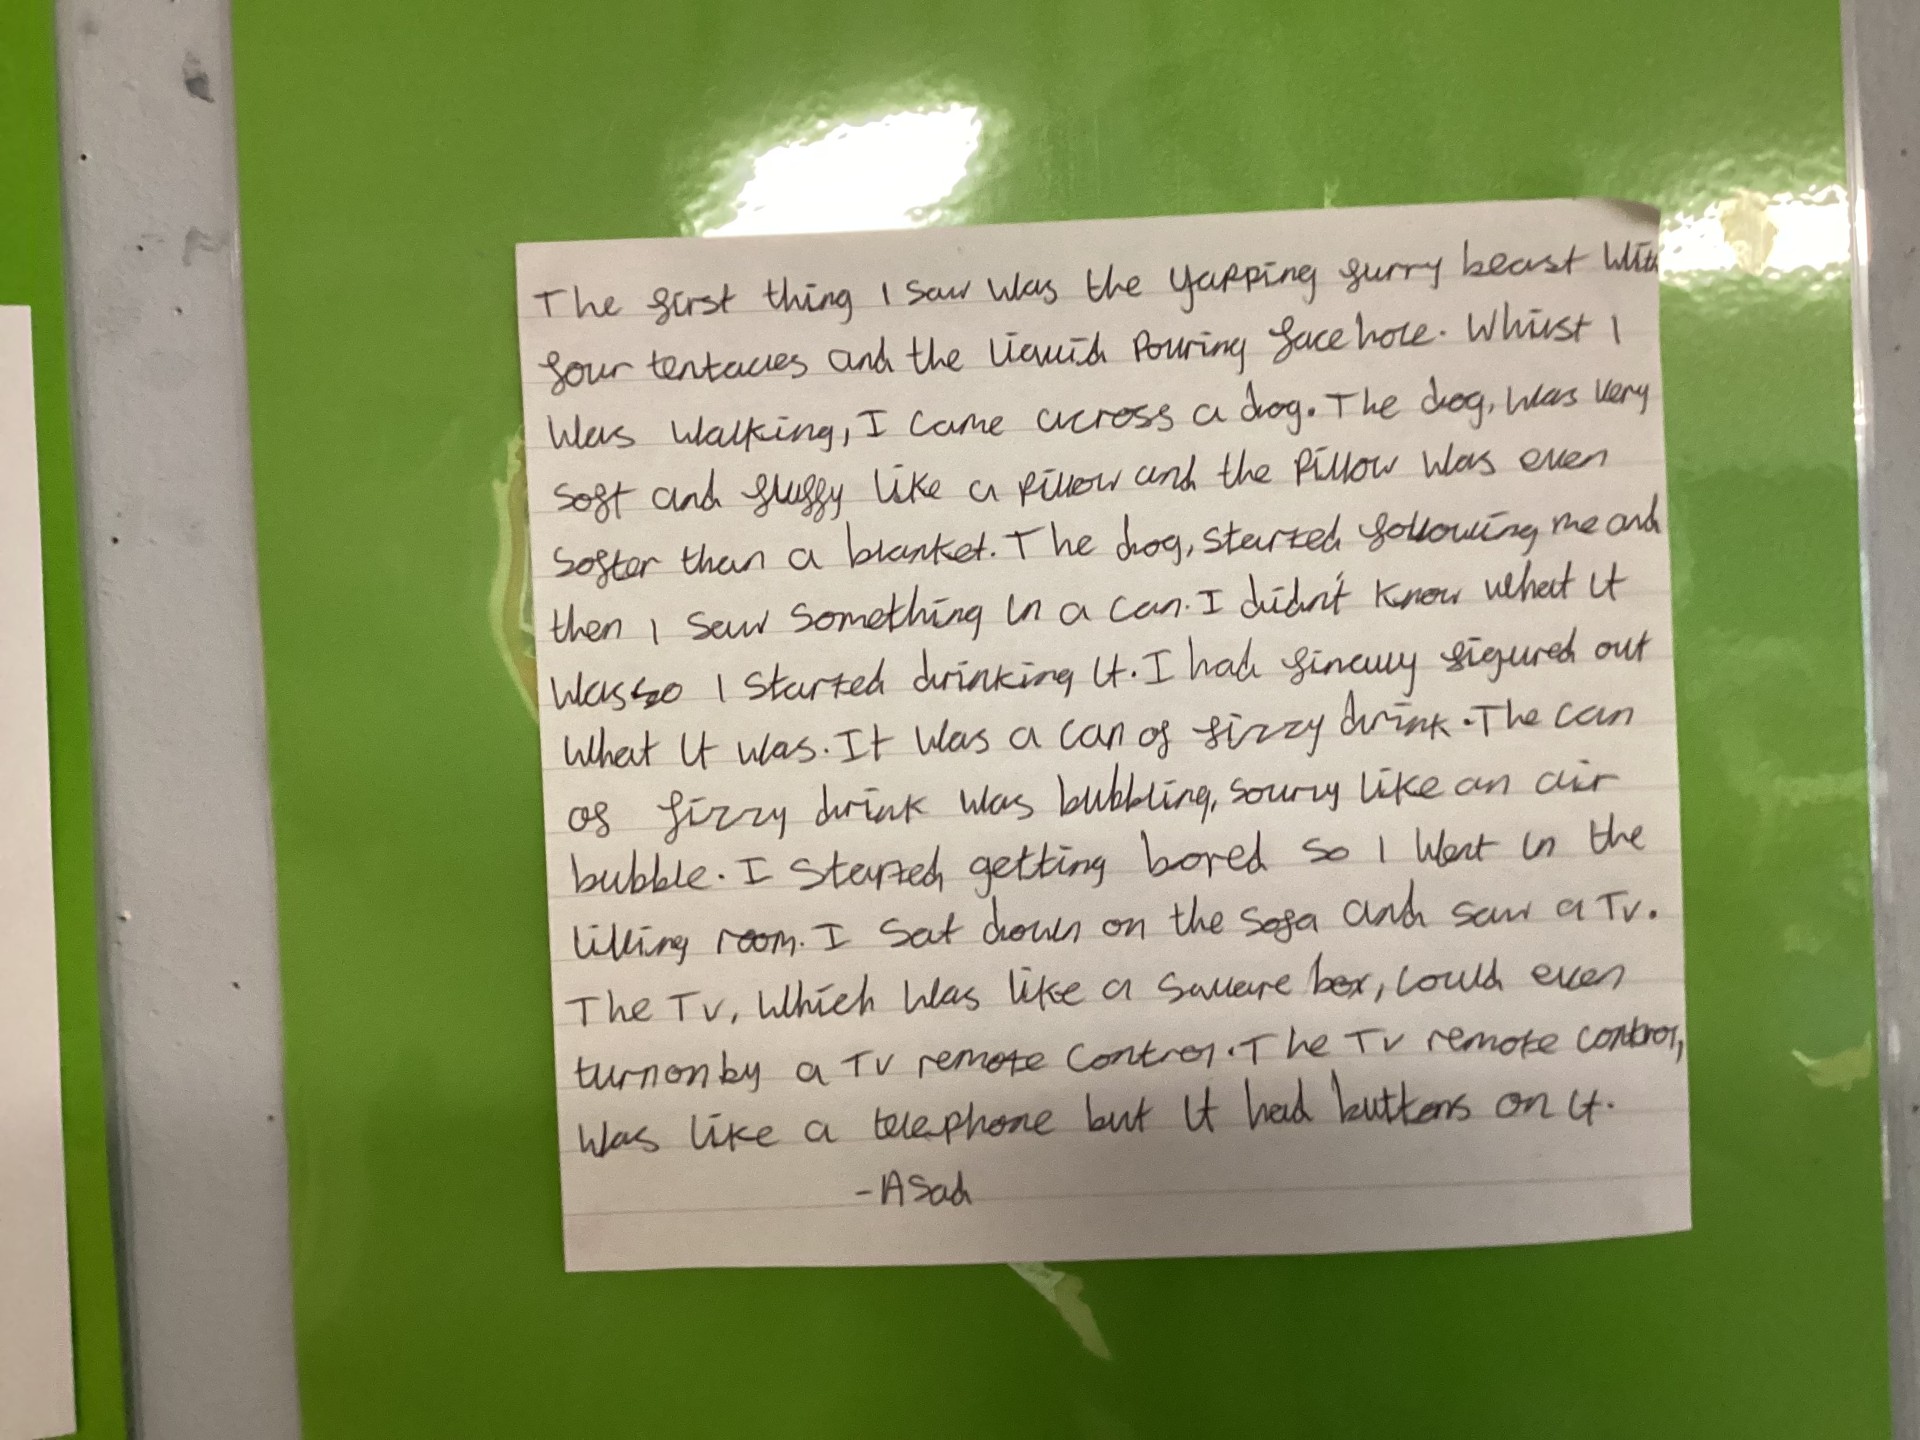 The first thing I saw was the yapping furry beast with
four tentacles and the liquid pouring face hole. Whilst I
was walking, I came across a dog. The dog, was very
soft and fluffy like a pillow and the pillow was even
softer than a blanket. The dog, started following me and
then I saw something in a can. I didn't know what it
was so I started drinking it. I had finally figured out
what it was. It was a can of fizzy drink. The can
of fizzy drink was bubbling, soury like an air
bubble. I started getting bored so I went in the
living room. I sat down on the sofa and saw a TV.
The TV, which was like a square box, could even
turn on by a TV remote control. The TV remote control,
was like a telephone but it had buttons on it.
-Asad